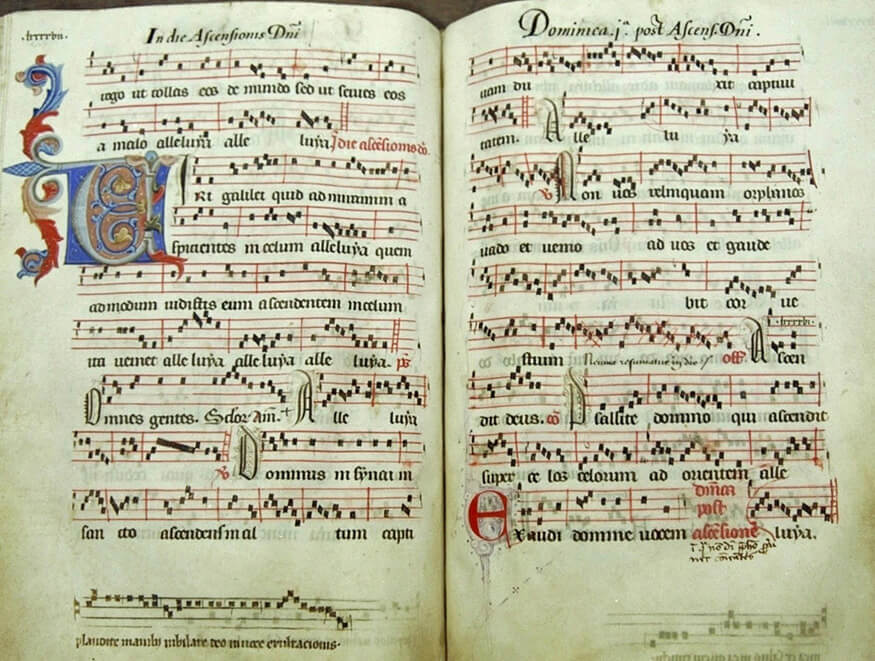 In die Ascensionis Dnī
rogo ut tollas eos de mundo sed ut serues eos
a malo alleluya alle luya. In die ascēsionis
Viri galilei quid admiramini a
spicientes in celum alleluya quem
admodum uidistis eum ascendentem in celum
ita ueniet alleluya alleluya alle luya. ps
Omnes gentes. Alle luya
℣ Dominus in synai in
san cto ascendens in al tum capti
plaudite manibus iubilate deo in uoce exultacionis.
Dominica .jª. post Ascens. Dnī.
uam du xit captiui
tatem. Alle lu ya
℣ Non uos relinquam orphanos
uado et uenio ad uos et gaude
bit cor ue
strum off Ascen
dit deus. co Psallite domino qui ascendit
super ce los celorum ad orientem alle
dnīca post ascēsionē luya.
Exaudi domine uocem